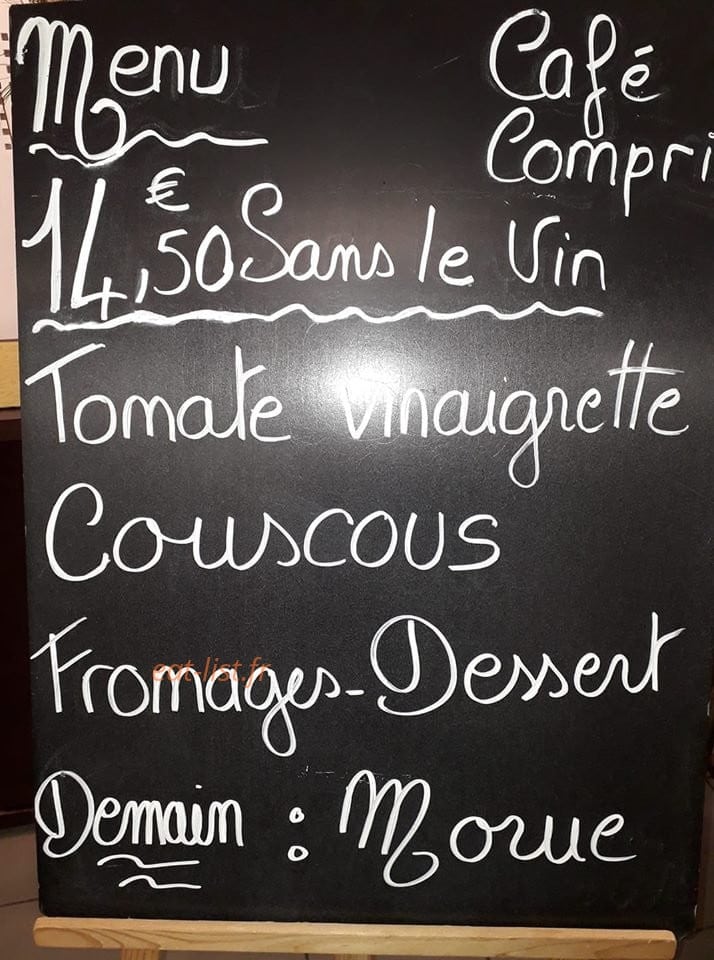 Menu
Café
Compri
14,50 € Sans le Vin
Tomate vinaigrette
Couscous
Fromages - Dessert
eat-list.fr
Demain : Morue